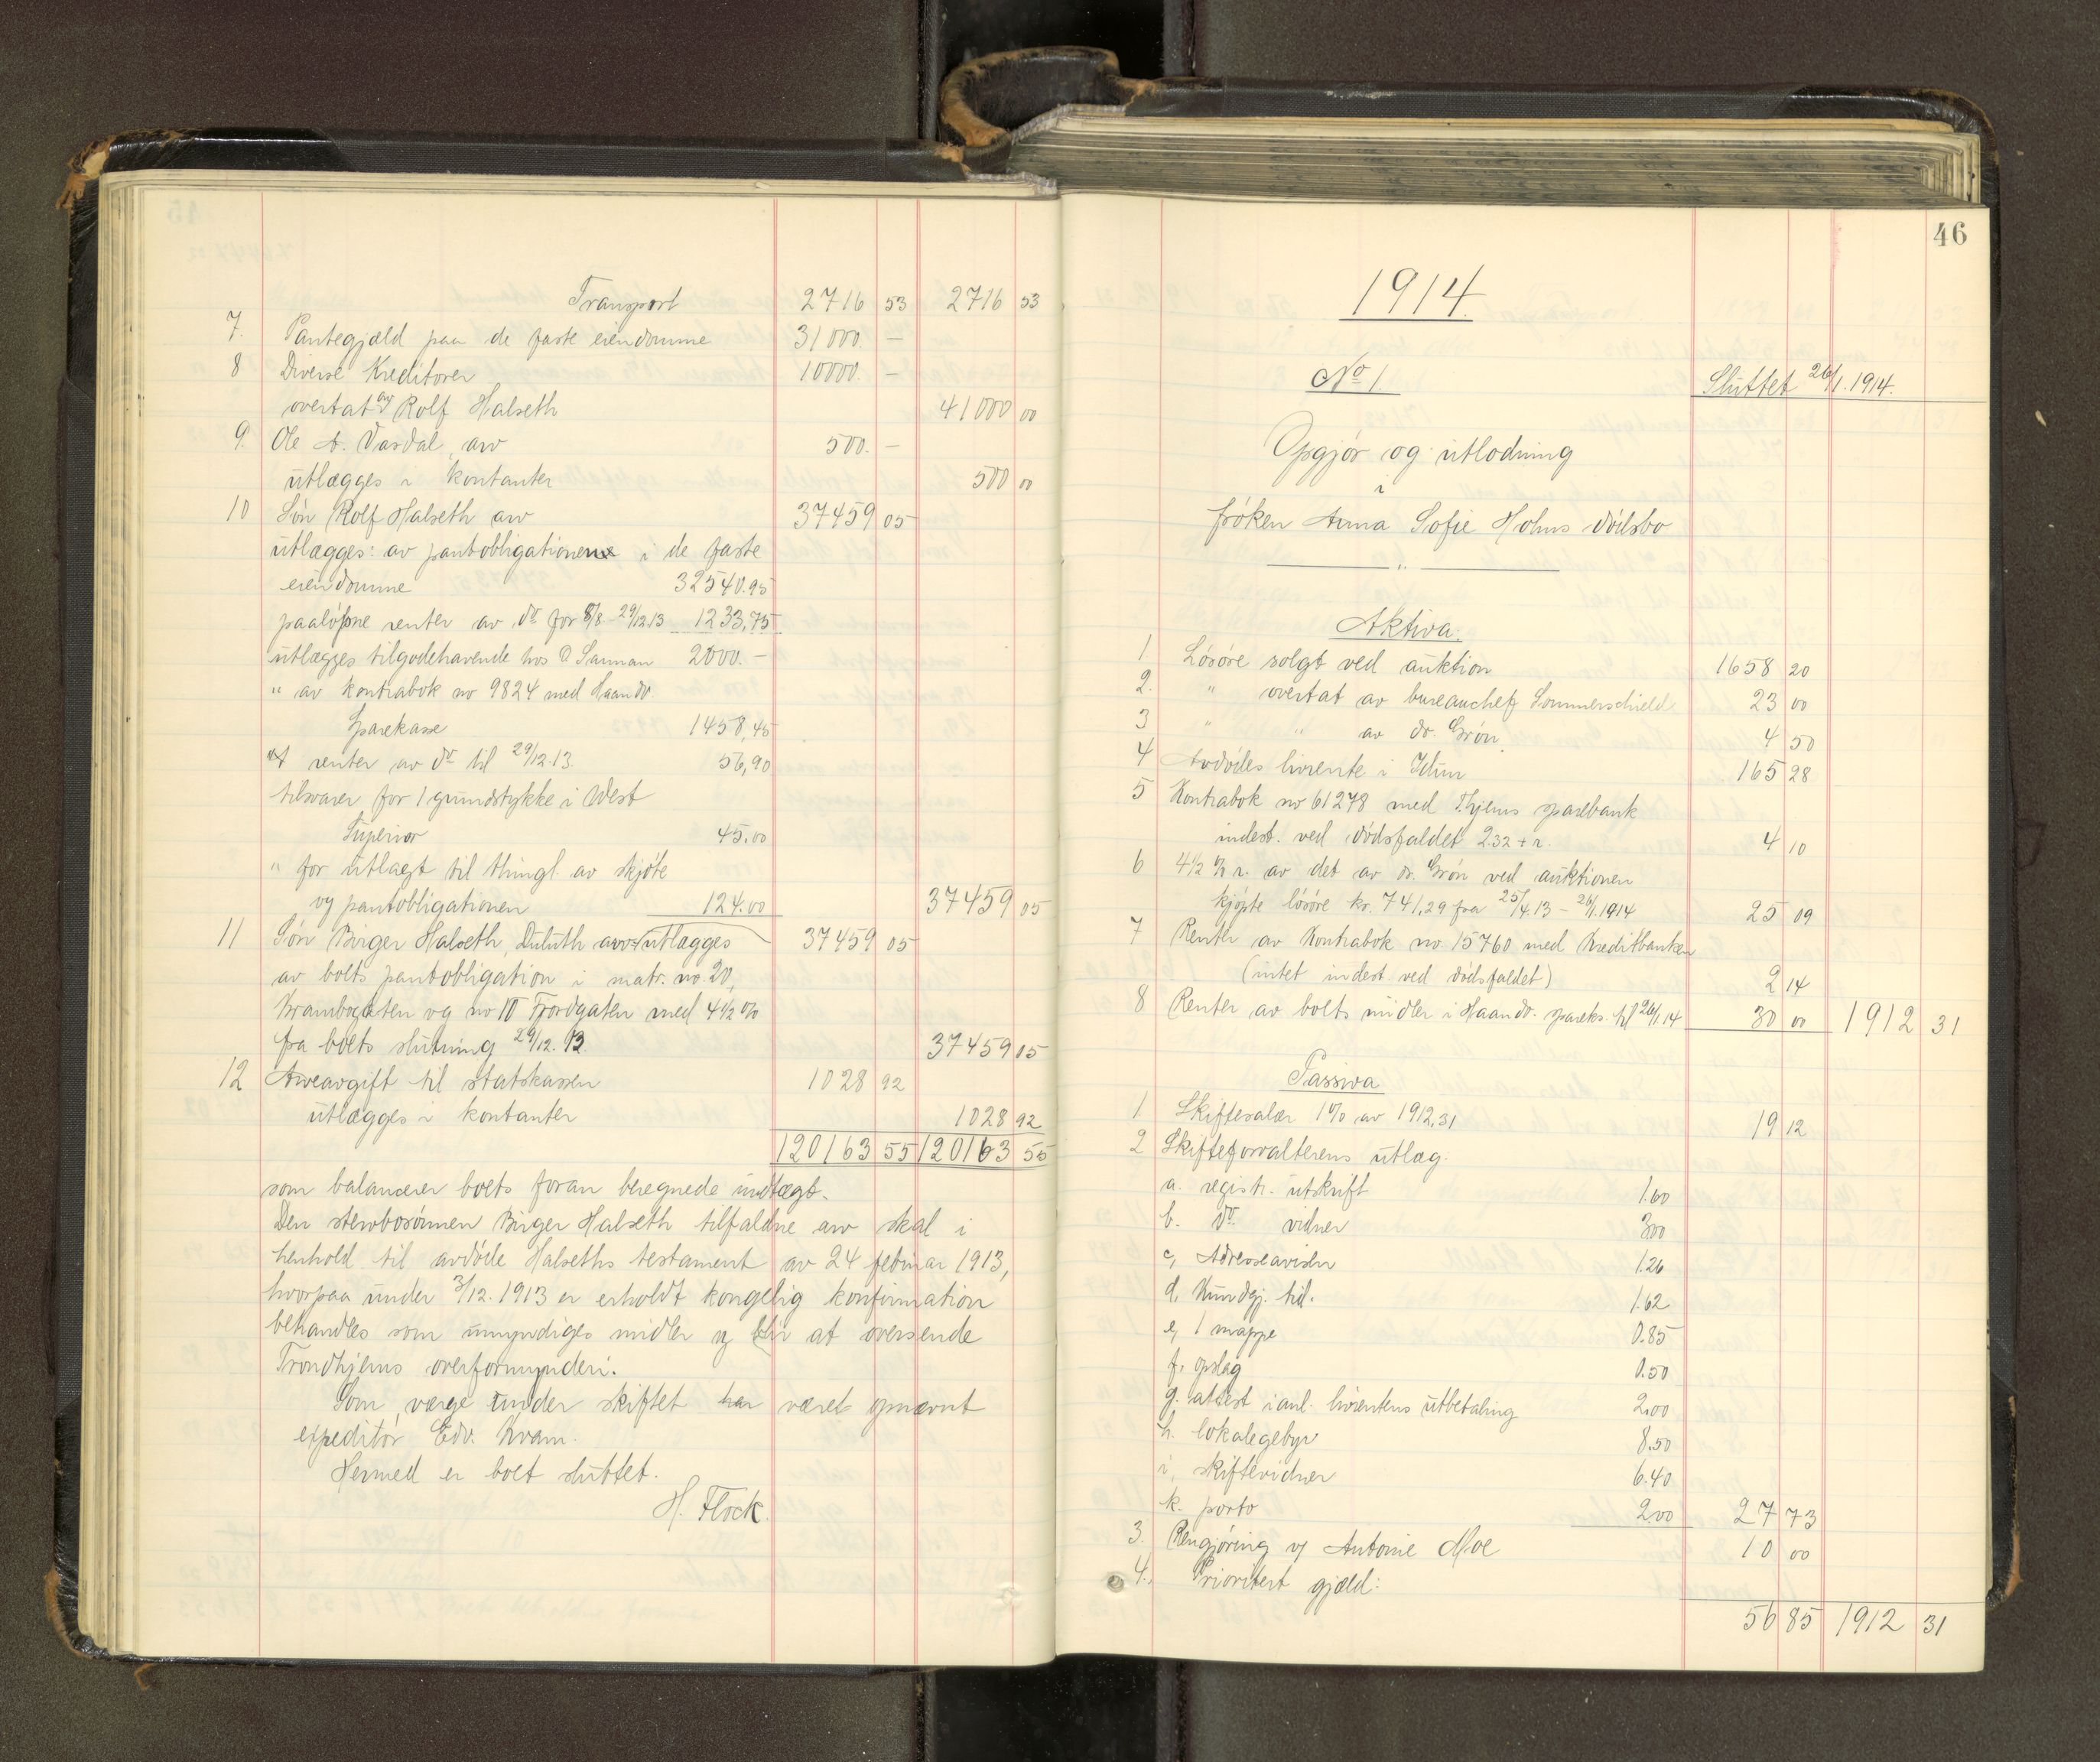 Transport 2716 53 2716 53
7. Pantegjæld paa de faste eiendomme 31000. –
8 Diverse Kreditorer 10000. –
overtat av Rolf Halseth 41000 00
9. Ole A. Vasdal, arv 500. –
utlægges i kontanter 500 00
10 Søn Rolf Halseth arv 37459 05
utlægges: av pantobligationen i de faste
eiendomme 32540.95
paaløpne renter av do for 8/8 - 29/12 13 1233,75
utlægges tilgodehavende hos O Saunan 2000. –
" av kontrabok no 9824 med Haandv
Sparekasse 1458,45
renter av do til 29/12.13. 56,90
tilsvarer for 1 grundstykke i West
Superior 45.00
" for utlagt til thingl. av skjøte
og pantobligationen 124.00 37459 05
11 Søn Birger Halseth, Duluth arv utlægges 37459 05
av boets pantobligation i matr. no. 20,
Krambogaten og no 10 Fjordgaten med 4 1/2 %
fra boets slutning 29/12. 13 37459 05
12 Arveavgift til statskassen 1028 92
utlægges i kontanter 1028 92
120163 55 120163 55
som balancerer boets foran beregnede indtægt.
Den stervbosønnen Birger Halseth tilfaldne arv skal i
henhold til avdøde Halseths testament av 24 februar 1913,
hvorpaa under 3/12. 1913 er erholdt kongelig konfirmation
behandles som umyndiges midler og blir at oversende
Trondhjems overformynderi.
Som værge under skiftet har været opnævnt
expeditør Edv. Kvam.
Hermed er boet sluttet.
H. Flock.
46
1914.
No 1 Sluttet 26/1.1914.
Opgjør og utlodning
i
frøken Anna Sofie Holms dødsbo
Aktiva.
1 Løsøre solgt ved auktion 1658 20
2. " overtat av bureauchef Sommerschield 23 00
3 " " av dr. Grøn 4 50
4 Avdødes livrente i Idun 165 28
5 Kontrabok no 61278 med Thjems sparebank
indest. ved dødsfaldet 2.32 + r. 4 10
6 4 1/2 % r. av det av dr. Grøn ved auktionen
kjøpte løsøre kr. 741,29 fra 25/4.13 – 26/1.1914 25 09
7 Renter av Kontrabok no. 15760 med Kreditbanken
(intet indest ved dødsfaldet) 2 14
8 Renter av boets midler i Haandv. spareks. til 26/1 14 30 00 1912 31
Passiva
1 Skiftesalær 1% av 1912,31 19 12
2 Skifteforvalterens utlæg.
a. registr. utskrift 1.60
b. do vidner 3.00
c, Adresseavisen 1.26
d, Kundgj. tid. 1.62
e, 1 mappe 0.85
f, opslag 0.50
g. attest i anl. livrentens utbetaling 2.00
h. lokalegebyr 8.50
i, skiftevidner 6.40
k. porto 2.00 27 73
3. Rengjøring v/ Antonie Moe 10 00
4. Prioritert gjæld:
56 85 1912 31